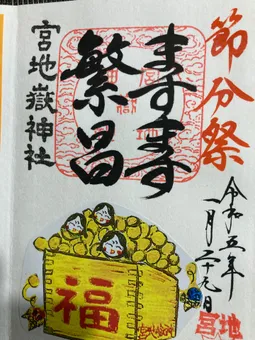 節分祭
令和五年
一月二十九日
ますます
繁昌
宮地嶽神社
福
宮地